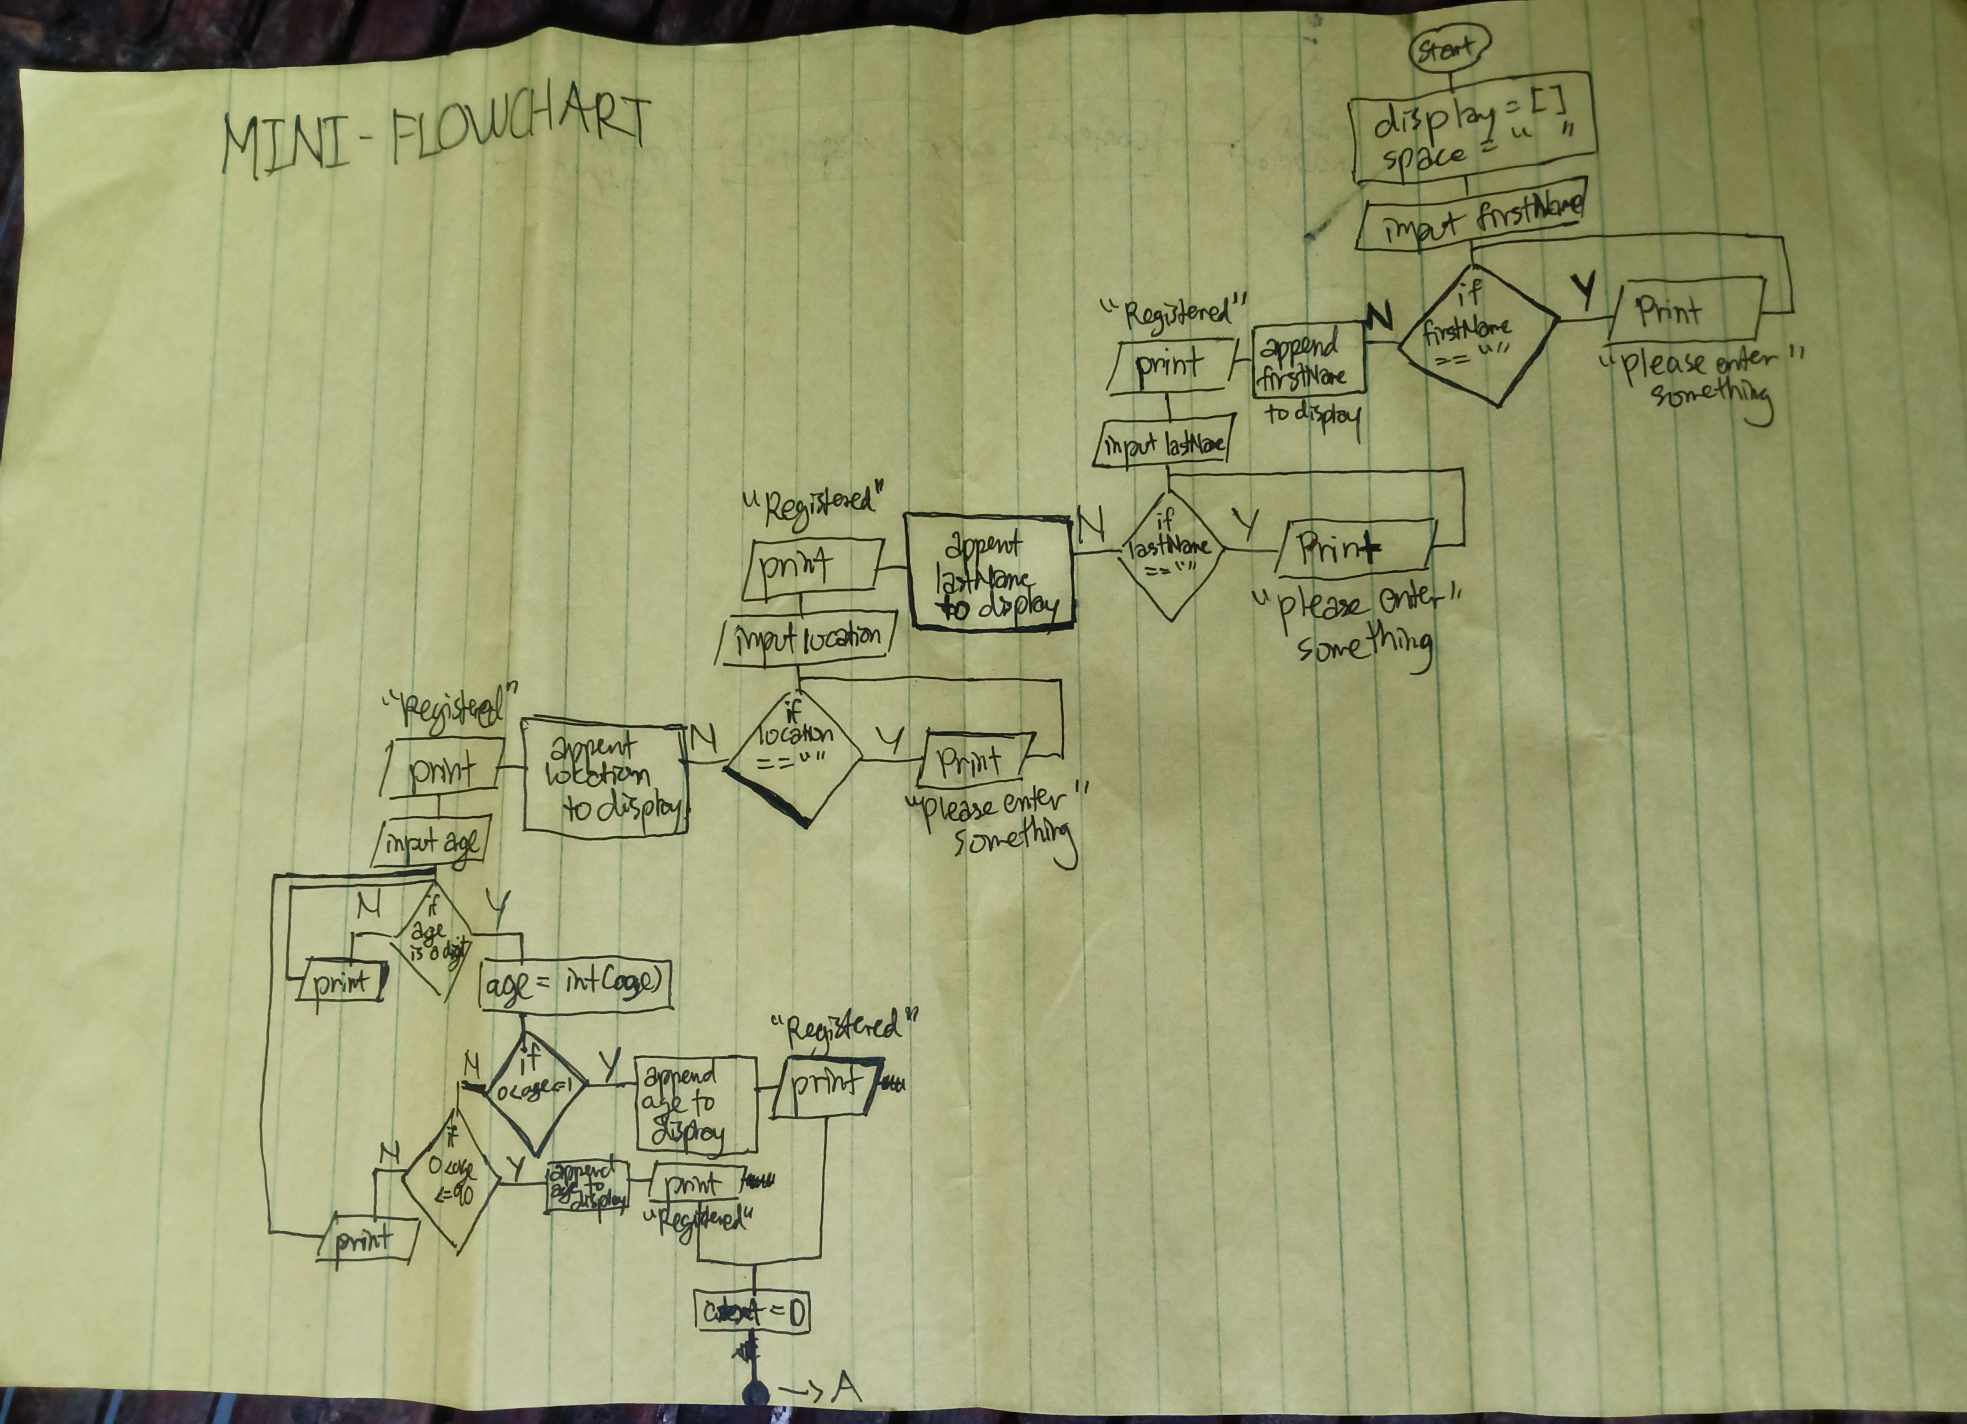 MINI-FLOWCHART
Start
display = []
space = " "
input firstName
if
firstName
== ""
Y
Print
"please enter"
something
N
append
firstName
to display
"Registered"
print
input lastName
if
lastName
== ""
Y
Print
"please enter"
something
N
appent
lastName
to display
"Registered"
print
input location
if
location
== ""
Y
Print
"please enter"
something
N
appent
location
to display
"Registered"
print
input age
if
age
is a digit
N
print
Y
age = int(age)
if
0<age=1
Y
append
age to
display
"Registered"
print
N
if
0<age
<=90
Y
append
age to
display
print
"Registered"
N
print
= 0
→ A